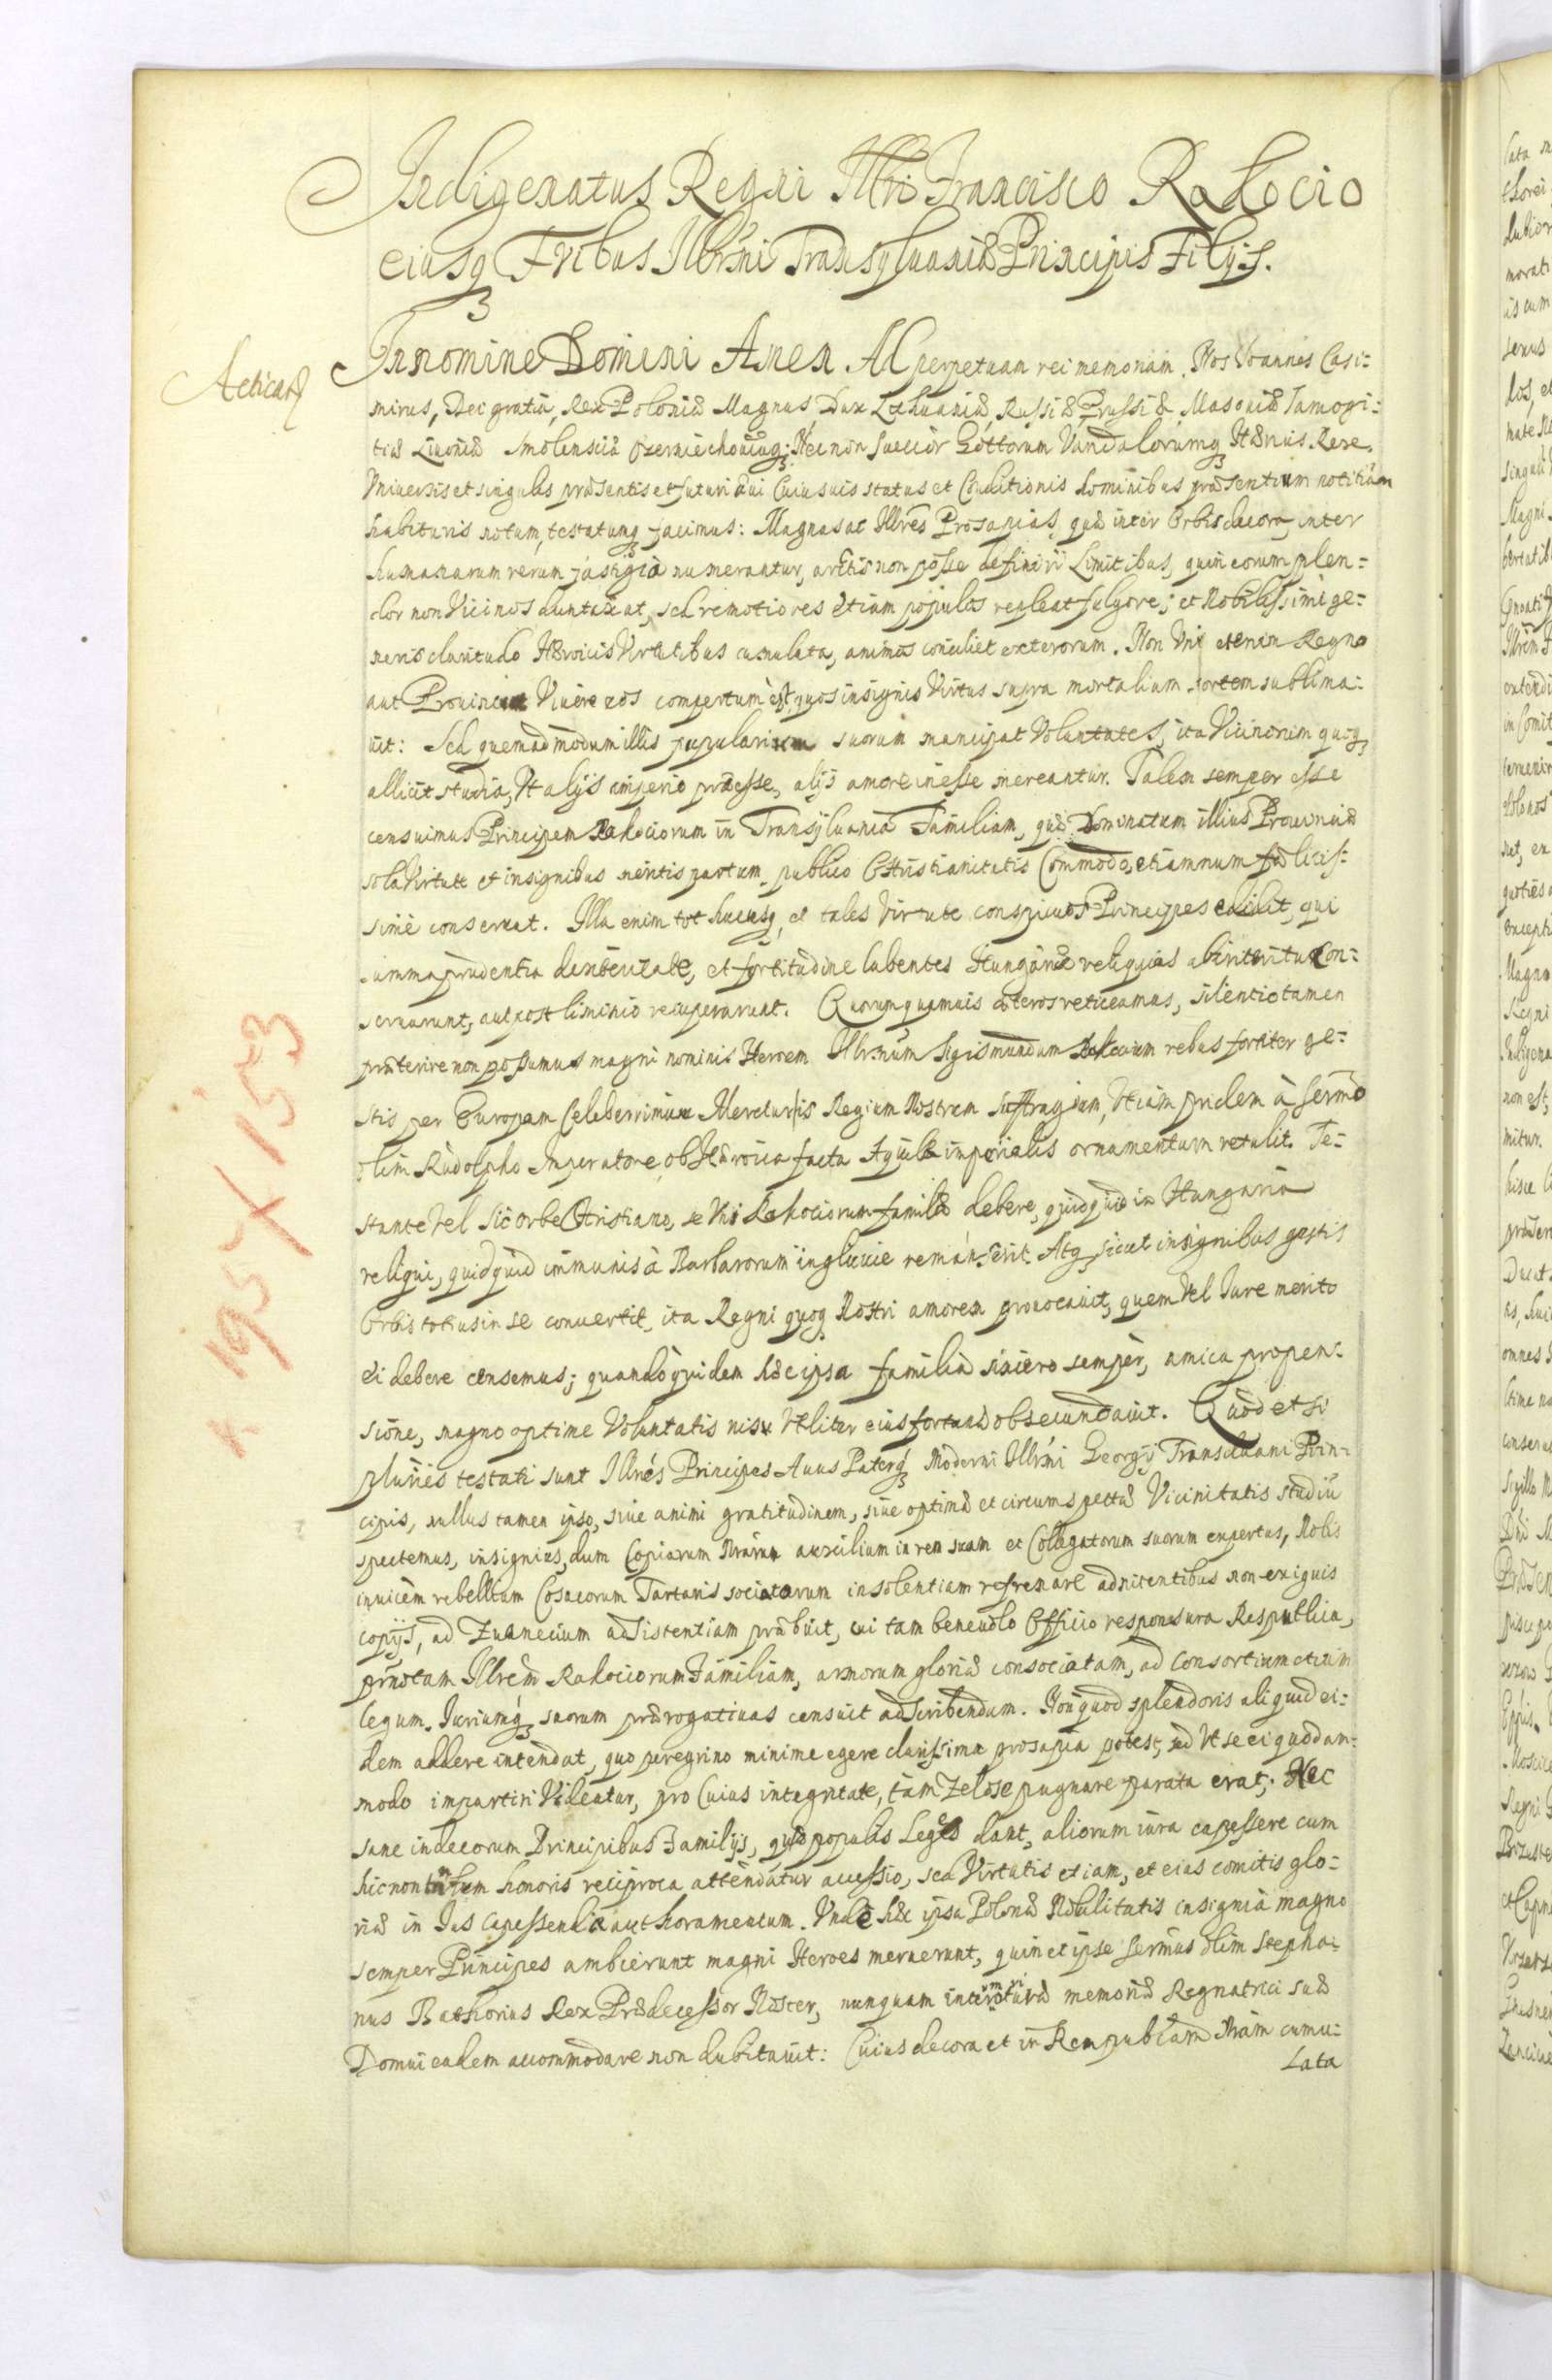 Indigenatus Regni Illri Francisco Rakocio
eiusq Fribus Illrmi Transyluaniæ Principis Filijs.
Acticand
In nomine Domini Amen Ad perpetuam rei memoriam. Nos Ioannes Casi=
mirus, Dei gratia, Rex Poloniæ Magnus Dux Lithuaniæ, Russiæ Prussiæ, Masouiæ Samogi=
tiæ Liuoniæ Smolensciæ Czerniechouiæq; Nec non Suecior Gottorum Vandalorumq Hæreius. Rex.
Vniuersis et singulis præsentis et futuri æui Cuiusuis status et Conditionis hominibus præsentium notitiam
habituris notum, testatumq facimus: Magnas ac Illres Prosapias, quæ inter Orbis decora, inter
humanarum rerum fastigia numerantur, arctis non posse definiri Limitibus, quin eorum splen=
dor non Vicinos duntaxat, sed remotiores etiam populos repleat fulgore; et Nobilissimi ge=
neris claritudo Heroicis Virtutibus cumulata, animos conciliet exterorum. Non Vni etenim Regno
aut Prouinciæ Viuere eos compertum est, quos insignis Virtus supra mortalium sortem sublima=
uit: Sed quemadmodum illis popularium suorum mancipat Voluntates, ita Vicinorum quoq
allicit studia, Vt alijs imperio præesse, alijs amore inesse mereantur. Talem semper esse
censuimus Principem Rakociorum in Transyluania Familiam, quæ Dominatum illius Prouinciæ
sola Virtute et insignibus meritis partum, publico Christianitatis Commodo, etiamnum fælicis=
sime conseruat. Illa enim tot hucusq, et tales Virtute conspicuos Principes edidit, qui
summa prudentia dexteritate, et fortitudine labentes Hungariæ reliquias ab interitu con=
seruarunt, aut post liminio recuperarunt. Quorum quamuis cæteros reticeamus, silentio tamen
præterire non possumus magni nominis Heroem Illrmum Sigismundum Rakocium rebus fortiter ge=
stis per Europam Celeberrimum Meretur is Regium Nostrum suffragium, Vti iam pridem à Sermo
olim Rudolpho Imperatore, ob Heroica facta Aquilæ imperialis ornamentum retulit. Te=
stante Vel sic orbe Christiano, se Vni Rakociorum familiæ debere, quidquid in Hungaria
reliqui, quidquid immunis à Barbarorum ingluuie remanserit. Atq sicut insignibus gestis
Orbis totius in se conuertit, ita Regni quoq Nostri amorem prouocauit, quem Vel Iure merito
ei debere censemus; quando quidem hæc ipsa familia sincero semper, amica propen=
sione, magno optime Voluntatis nisu Vtiliter eius fortunæ obsecundauit. Quod et si
pluries testati sunt Illres Principes Auus Paterq Moderni Illrmi Georgij Transiluani Prin=
cipis, nullus tamen ipso, siue animi gratitudinem, siue optimæ et circumspectæ Vicinitatis studiu
spectemus, insignius, dum Copiarum Nrarum auxilium in rem suam et Collegatorum suorum expertus, Nobis
inuicem rebellium Cosacorum Tartaris sociatorum insolentiam refrenare adnitentibus non exiguis
copijs, ad Zuanecium adsistentiam præbuit, cui tam beneuolo Officio responsura Respublica,
prænotam Illrem Rakociorum Familiam, armorum gloriæ consociatam, ad consortium etiam
legum. Iuriumq suorum prærogatiuas censuit adscribendum. Non quod splendoris aliquid ei=
dem addere intendat, quo peregrino minime egere clarissima prosapia potest, sed Vt se ei quodam=
modo impartiri Videatur, pro Cuius integritate, tam zelose pugnare parata erat; Nec
sane indecorum Principibus Familijs, quæ populis Leges dant, aliorum iura capessere cum
hic non tantum honoris reciproca attendatur accessio, sed Virtutis etiam, et eius comitis glo=
riæ in Ius Capessendæ authoramentum. Vnde hæc ipsa Polonæ Nobilitatis insignia magno
semper Principes ambierunt magni Heroes meruerunt, quin et ipse Sermus olim Stepha=
nus Bathorius Rex Prædecessor Noster, nunquam intermorituræ memoriæ Regnatrici suæ
Domui eadem accommodare non dubitauit: Cuius decora et in Rempublcam Nram cumu=
Lata